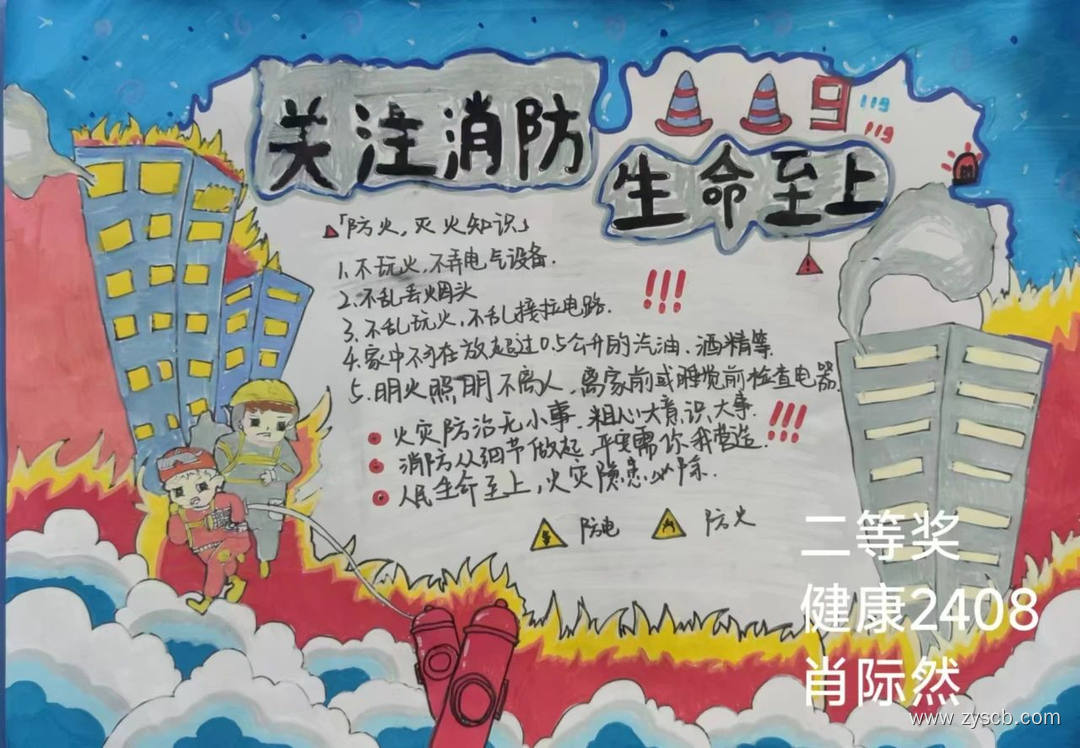 关注消防
生命至上
119
119
「防火,灭火知识」
1.不玩火,不弄电气设备.
2.不乱丢烟头
3.不乱玩火,不乱接拉电路.
!!!
4.家中不可存放超过0.5公升的汽油、酒精等.
5.明火照明不离人,离家前或睡觉前检查电器.
火灾防治无小事.粗心大意识大事.
!!!
消防从细节做起,平安需你我营造.
人民生命至上,火灾隐患必除.
防电
防火
二等奖
健康2408
肖际然
www.zyscb.com